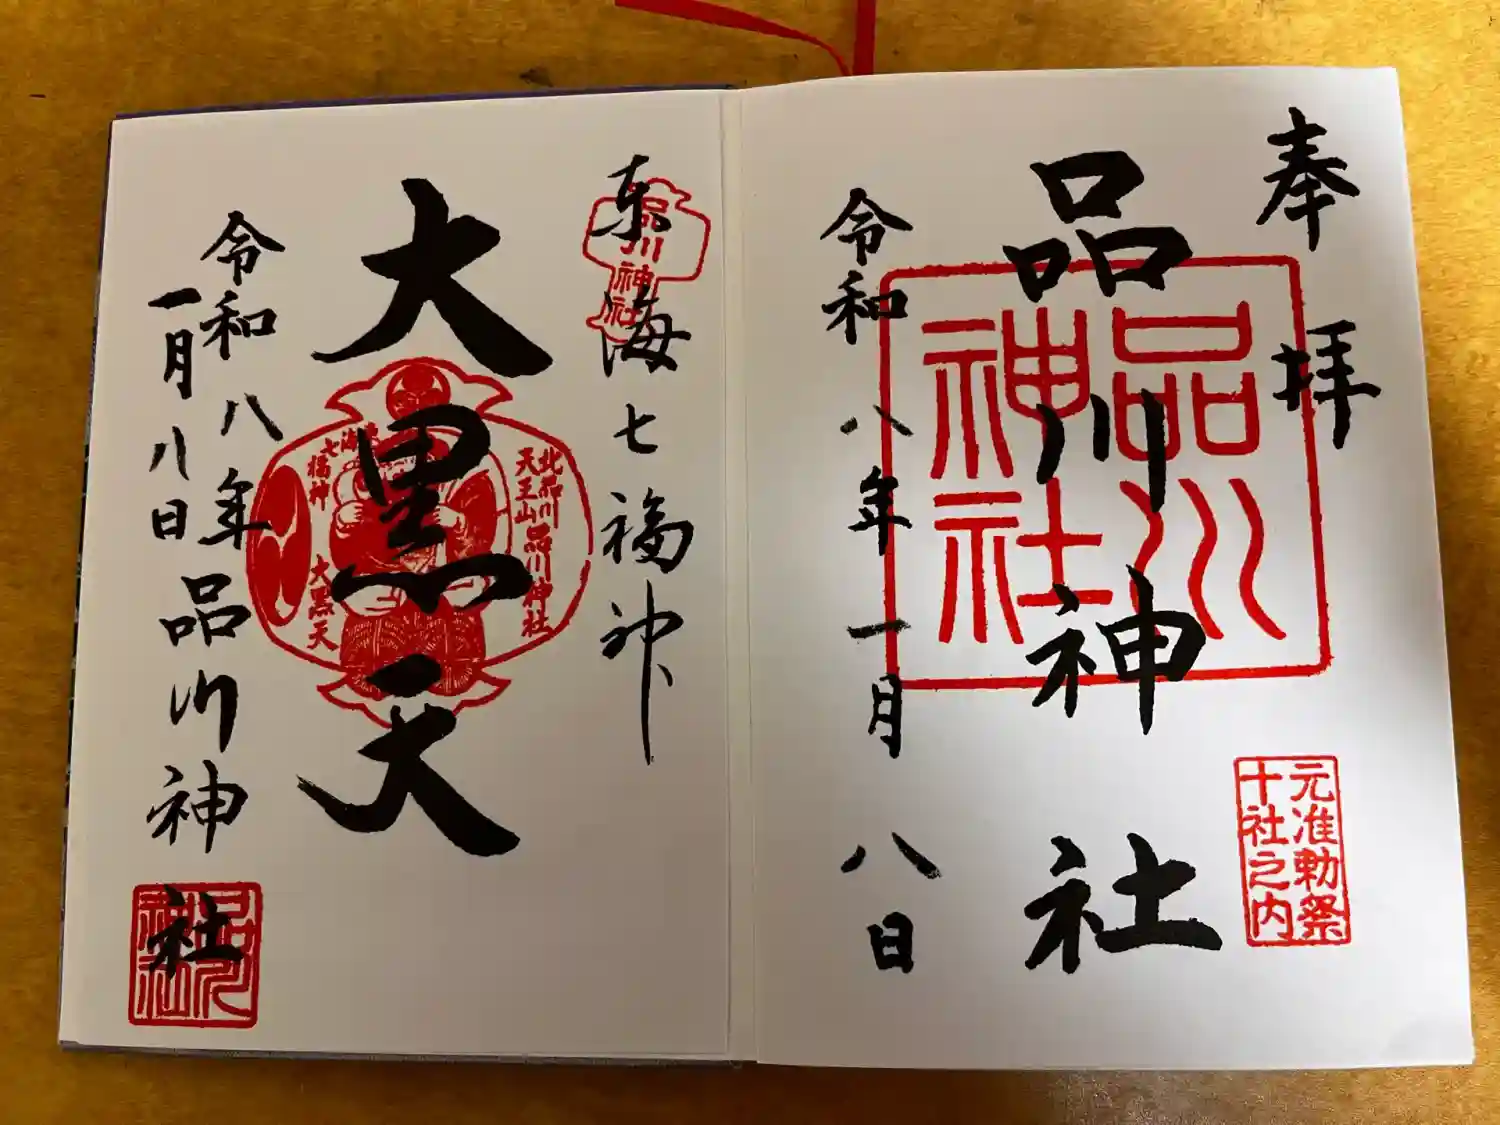 奉拝
品川神社
令和八年一月八日
品川神社
元准勅祭
十社之内
东海七福神
品川神社
大黒天
北品川
天王山
品川神社
東海
七福神
大黒天
令和八年品川神社
一月八日
品川神社